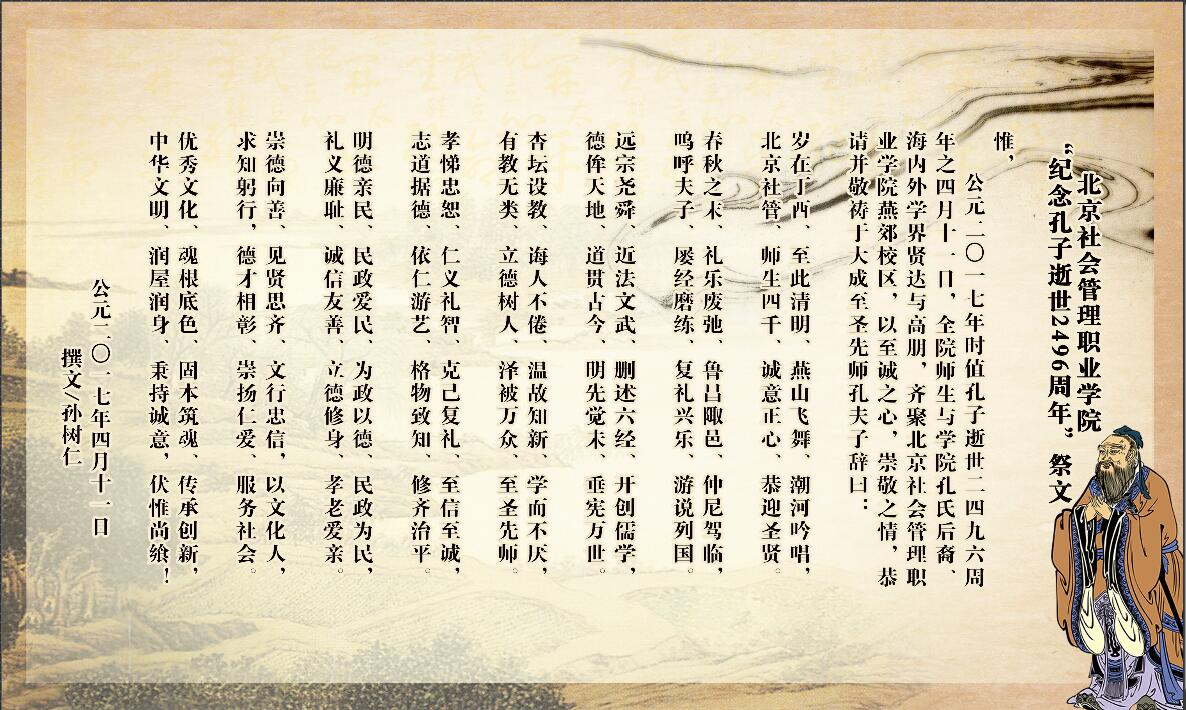 北京社会管理职业学院
“纪念孔子逝世2496周年”祭文
惟，
公元二〇一七年时值孔子逝世二四九六周
年之四月十一日，全院师生与学院孔氏后裔、
海内外学界贤达与高朋，齐聚北京社会管理职
业学院燕郊校区，以至诚之心，崇敬之情，恭
请并敬祷于大成至圣先师孔夫子辞曰：
岁在丁酉、至此清明、燕山飞舞、潮河吟唱，
北京社管、师生四千、诚意正心、恭迎圣贤。
春秋之末、礼乐废弛、鲁昌陬邑、仲尼驾临，
呜呼夫子、屡经磨练、复礼兴乐、游说列国。
远宗尧舜、近法文武、删述六经、开创儒学，
德侔天地、道贯古今、明先觉未、垂宪万世。
杏坛设教、诲人不倦、温故知新、学而不厌，
有教无类、立德树人、泽被万众、至圣先师。
孝悌忠恕、仁义礼智、克己复礼、至信至诚，
志道据德、依仁游艺、格物致知、修齐治平。
明德亲民、民政爱民、为政以德、民政为民，
礼义廉耻、诚信友善、立德修身、孝老爱亲。
崇德向善、见贤思齐、文行忠信，以文化人，
求知躬行，德才相彰、崇扬仁爱、服务社会。
优秀文化、魂根底色、固本筑魂、传承创新，
中华文明、润屋润身、秉持诚意，伏惟尚飨！
公元二〇一七年四月十一日
撰文/孙树仁